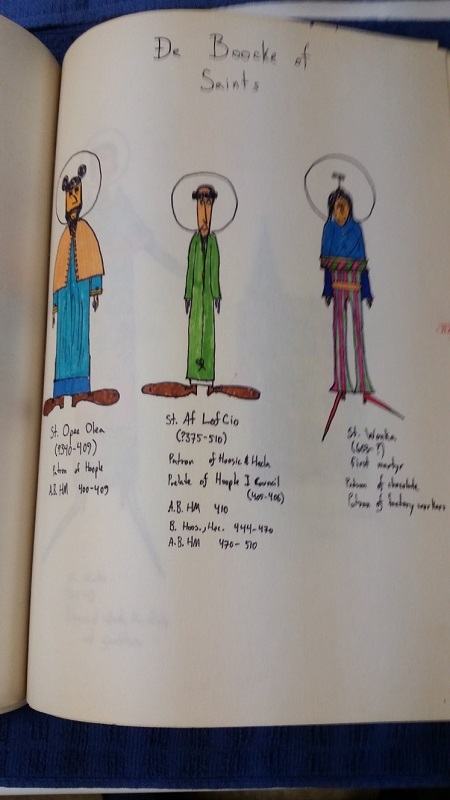 De Boocke of
Saints
St. Opee Olea
(?340-409)
Patron of Hoople
A.B. HM 400-409
St. Af LefCio
(?375-510)
Patron of Hoosic & Hecla
Prelate of Hoople I Council
(405-406)
A.B. HM 410
B. Hoos., Hec. 444-470
A.B. HM 470-510
St. Wonka
First martyr
Patron of chocolate
Patron of factory workers